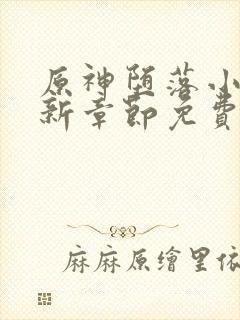 原神堕落小
新章節免費
麻麻原繪里依